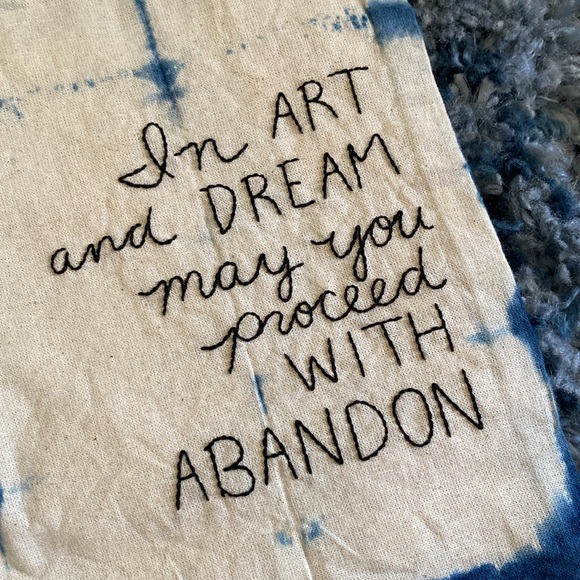 In ART
and DREAM
may you
proceed
WITH
ABANDON